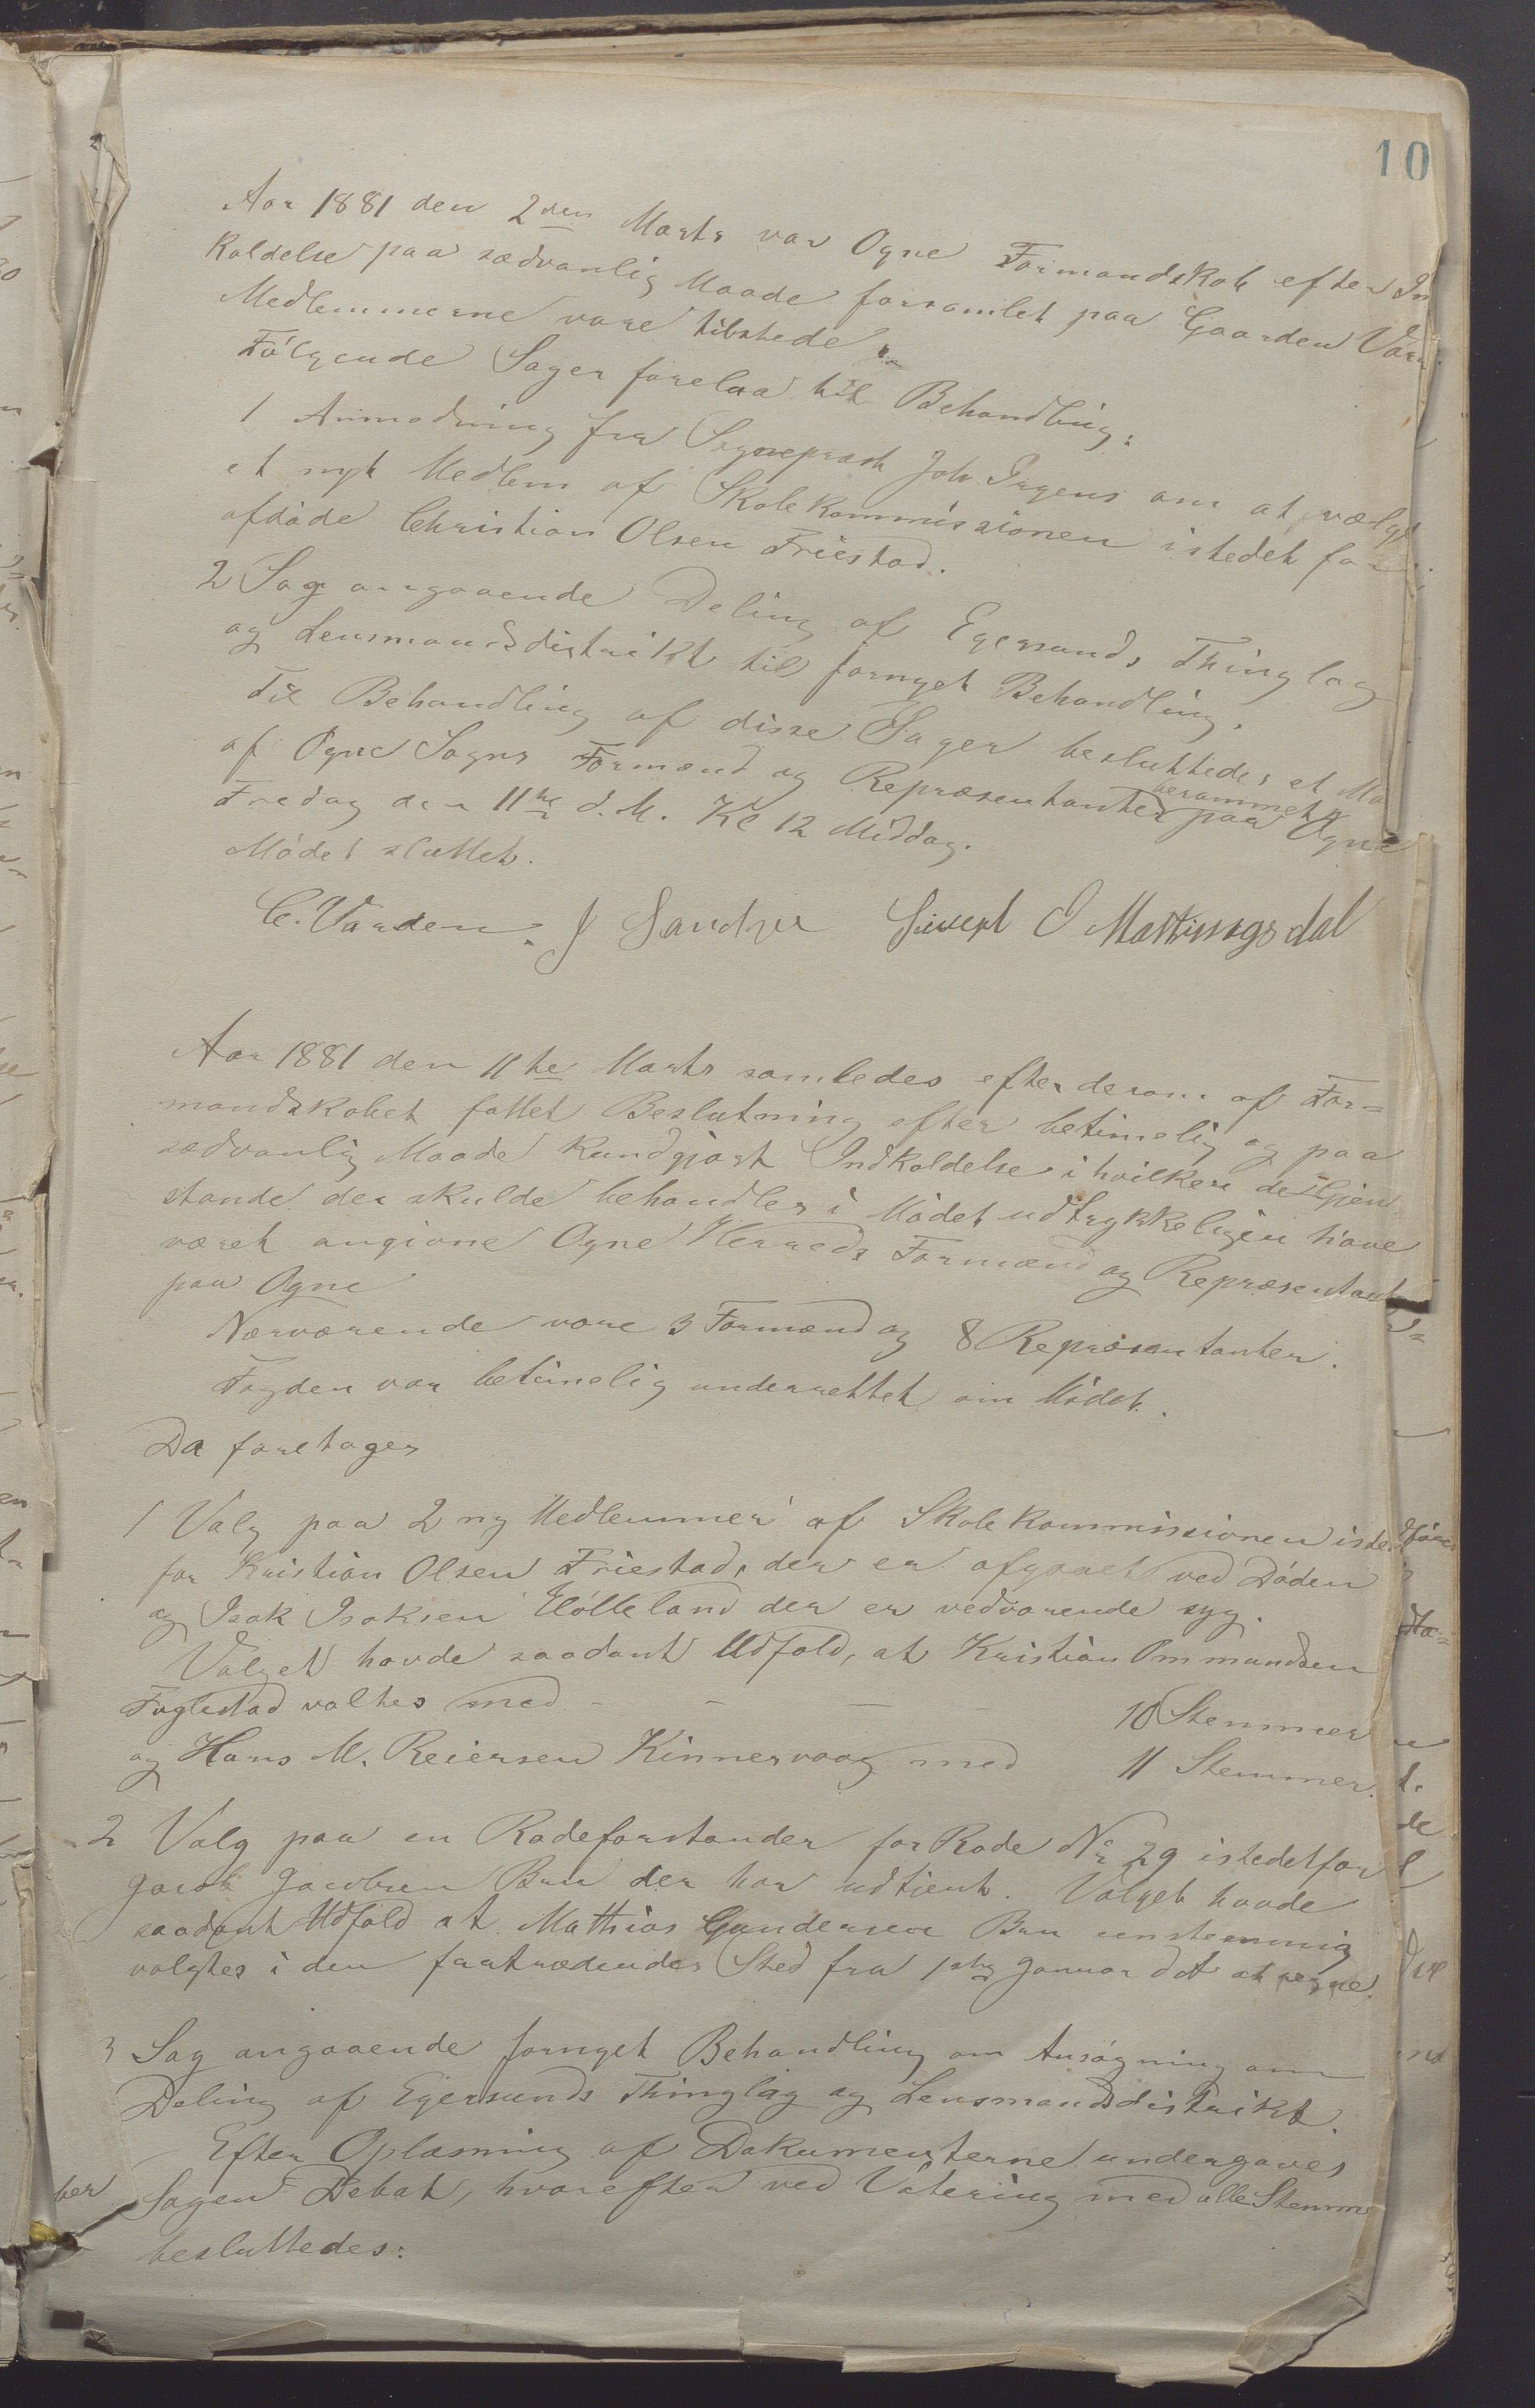 10
Aar 1881 den 2den Marts var Ogne Formandskab efter In
kaldelse paa sædvanlig Maade forsamlet paa Gaarden Var
Medlemmerne vare tilstede.
Følgende Sager forelaa til Behandling:
1 Anmodning fra Sognepræst Joh. Irgens om at vælge
et nyt Medlem af Skolekommissionen istedet for
afdøde Christian Olsen Friestad.
2 Sag angaaende Deling af Egersunds Thinglag
og Lensmandsdistrikt til fornyet Behandling.
Til Behandling af disse Sager besluttedes et Mø
af Ogne Sogns Formænd og Repræsentanter berammet paa Ogne
Fredag den 11te d. M. Kl 12 Middag.
Mødet sluttet.
C. Varden. J Sandve Sivert O Mattingsdal
Aar 1881 den 11te Marts samledes efter derom af For=
mandskabet fattet Beslutning efter betimelig og paa
sædvanlig Maade kundgjort Indkaldelse i hvilken de Gjen
stande der skulde behandles i Mødet udtrykkeligen have
været angivne Ogne Herreds Formænd og Repræsentant
paa Ogne
Nærværende vare 3 Formænd og 8 Repræsentanter.
Fogden var betimelig underrettet om Mødet.
Da foretages
1 Valg paa 2 ny Medlemmer af Skolekommissionen isted
for Kristian Olsen Friestad, der er afgaaet ved Døden
og Isak Isaksen Hølleland der er vedvarende syg.
Valget havde saadant Udfald, at Kristian Ommundsen
Fuglestad valtes med - - - - 10 Stemmer
og Hans M. Reiersen Kinnervaag med 11 Stemmer.
2 Valg paa en Rodeforstander for Rode No 29 istedetfor
Jacob Jacobsen Bru der har udtjent. Valget havde
saadant Udfald at Mathias Gundersen Bru enstemmig
valgtes i den fratrædendes Sted fra 1ste Januar d A at regne.
3 Sag angaaende fornyet Behandling om Ansøgning om
Deling af Egersunds Thinglag og Lensmandsdistrikt.
Efter Oplæsning af Dokumenterne undergaves
Sagen Debat, hvorefter ved Votering med alle Stemm
besluttedes: